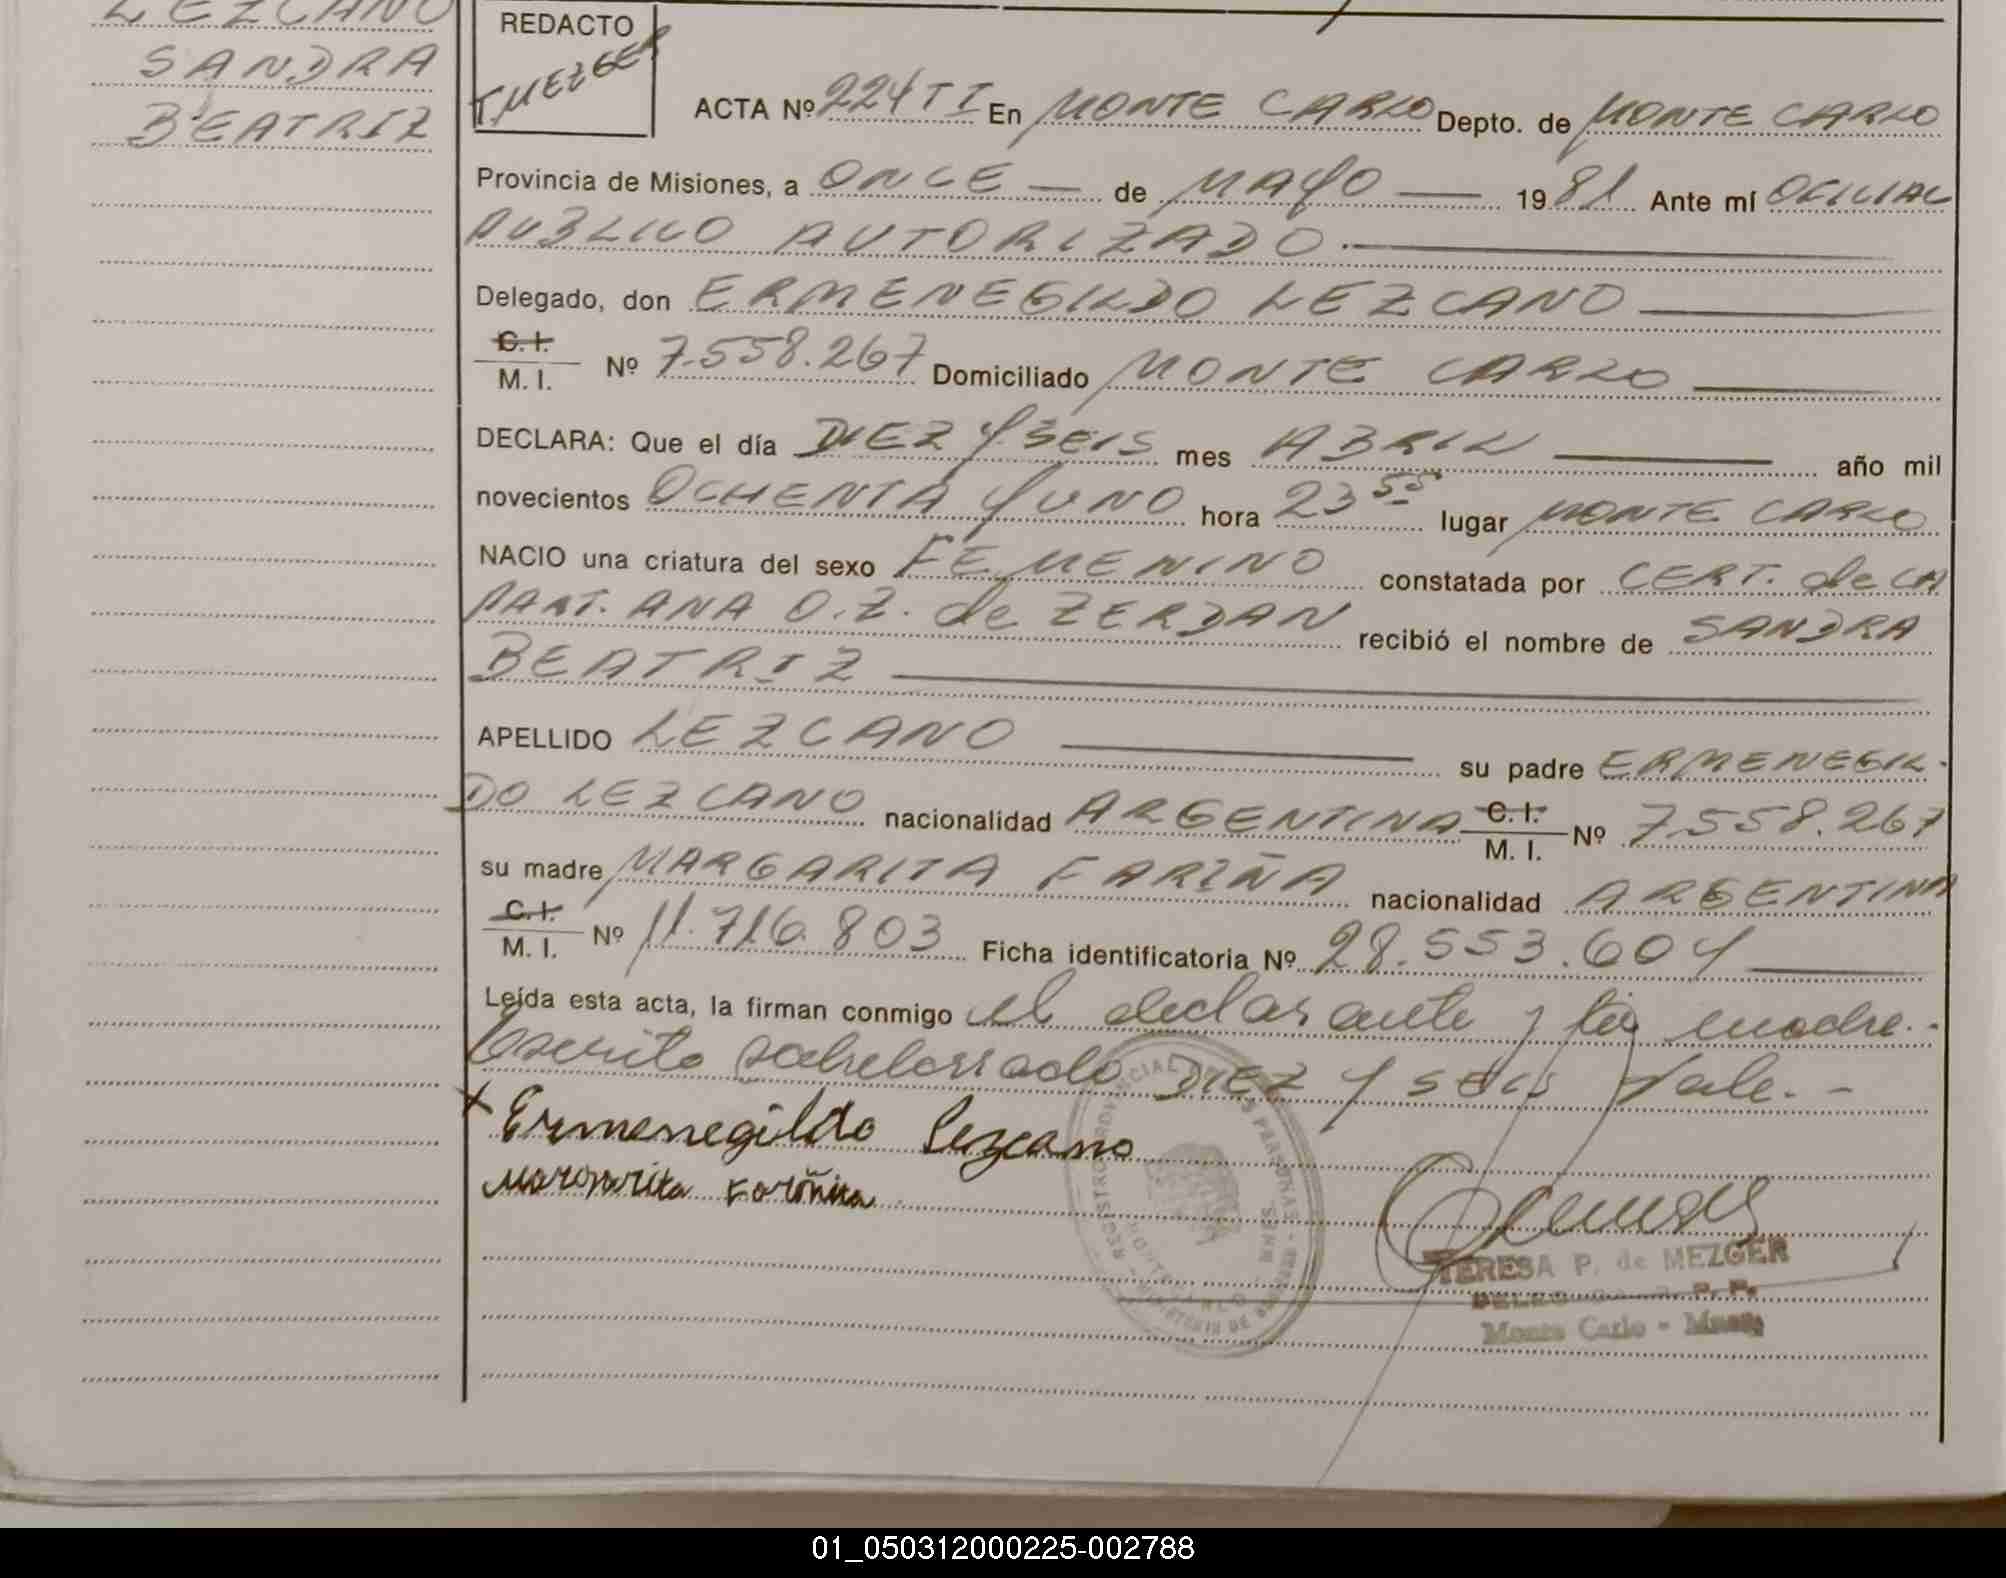 LEZCANO
SANDRA
BEATRIZ
REDACTO
T. MEZGER
ACTA Nº 224 T I En MONTE CARLO Depto. de MONTE CARLO
Provincia de Misiones, a ONCE — de MAYO — 1981 Ante mí OFICIAL
PUBLICO AUTORIZADO.
Delegado, don ERMENEGILDO LEZCANO
C.I.
M. I. Nº 7.558.267 Domiciliado MONTE CARLO
DECLARA: Que el día DIEZ Y SEIS mes ABRIL año mil
novecientos OCHENTA Y UNO hora 23 55 lugar MONTE CARLO
NACIO una criatura del sexo FEMENINO constatada por CERT. de LA
PART. ANA O. Z. de ZERDAN recibió el nombre de SANDRA
BEATRIZ
APELLIDO LEZCANO su padre ERMENEGIL-
DO LEZCANO nacionalidad ARGENTINA C.I. M. I. Nº 7.558.267
su madre MARGARITA FARIÑA nacionalidad ARGENTINA
C.I.
M. I. Nº 11.716.803 Ficha identificatoria Nº 28.553.604
Leída esta acta, la firman conmigo el declarante y la madre.-
Escrito sobreborrado DIEZ Y SEIS Vale.-
x Ermenegildo Lezcano
Margarita Fariña
TERESA P. de MEZGER
R. P. P.
Monte Carlo - Mnes
01_050312000225-002788